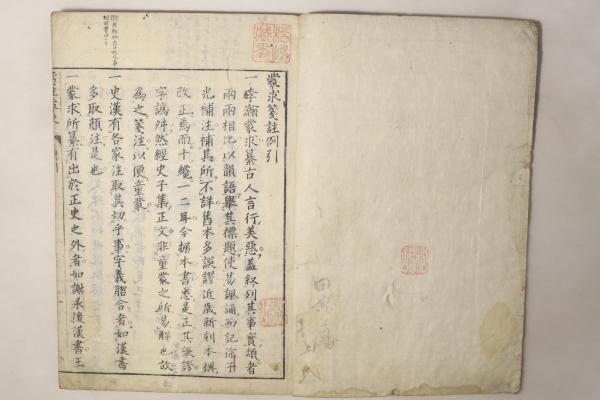 蒙求箋註例引
一李瀚蒙求纂古人言行美惡蓋叙列其事實類者
兩兩相比以韻語舉其標題使易諷誦而記徐子
光補注補其所不詳舊本多誤謬近歲新刻本稍
改正焉而十纔一二耳今據本書悉是正其譌謬
字譌舛然經史子集正文非童蒙之所易解也故
為之箋注以便童蒙
一史漢有各家注取其切乎事字義㬹合者如漢書
多取顏注是也
一蒙求所纂有出於正史之外者如謝承後漢書王